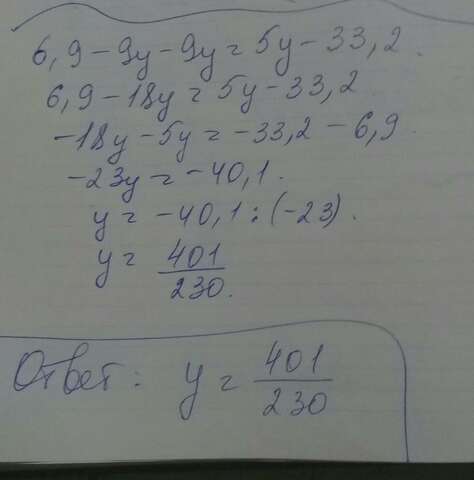 6,9 - 9y - 9y = 5y - 33,2.
6,9 - 18y = 5y - 33,2
-18y - 5y = -33,2 - 6,9.
-23y = -40,1.
y = -40,1 : (-23).
y = 401/230.
Ответ: y = 401/230